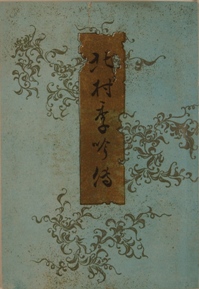 北村季吟傳